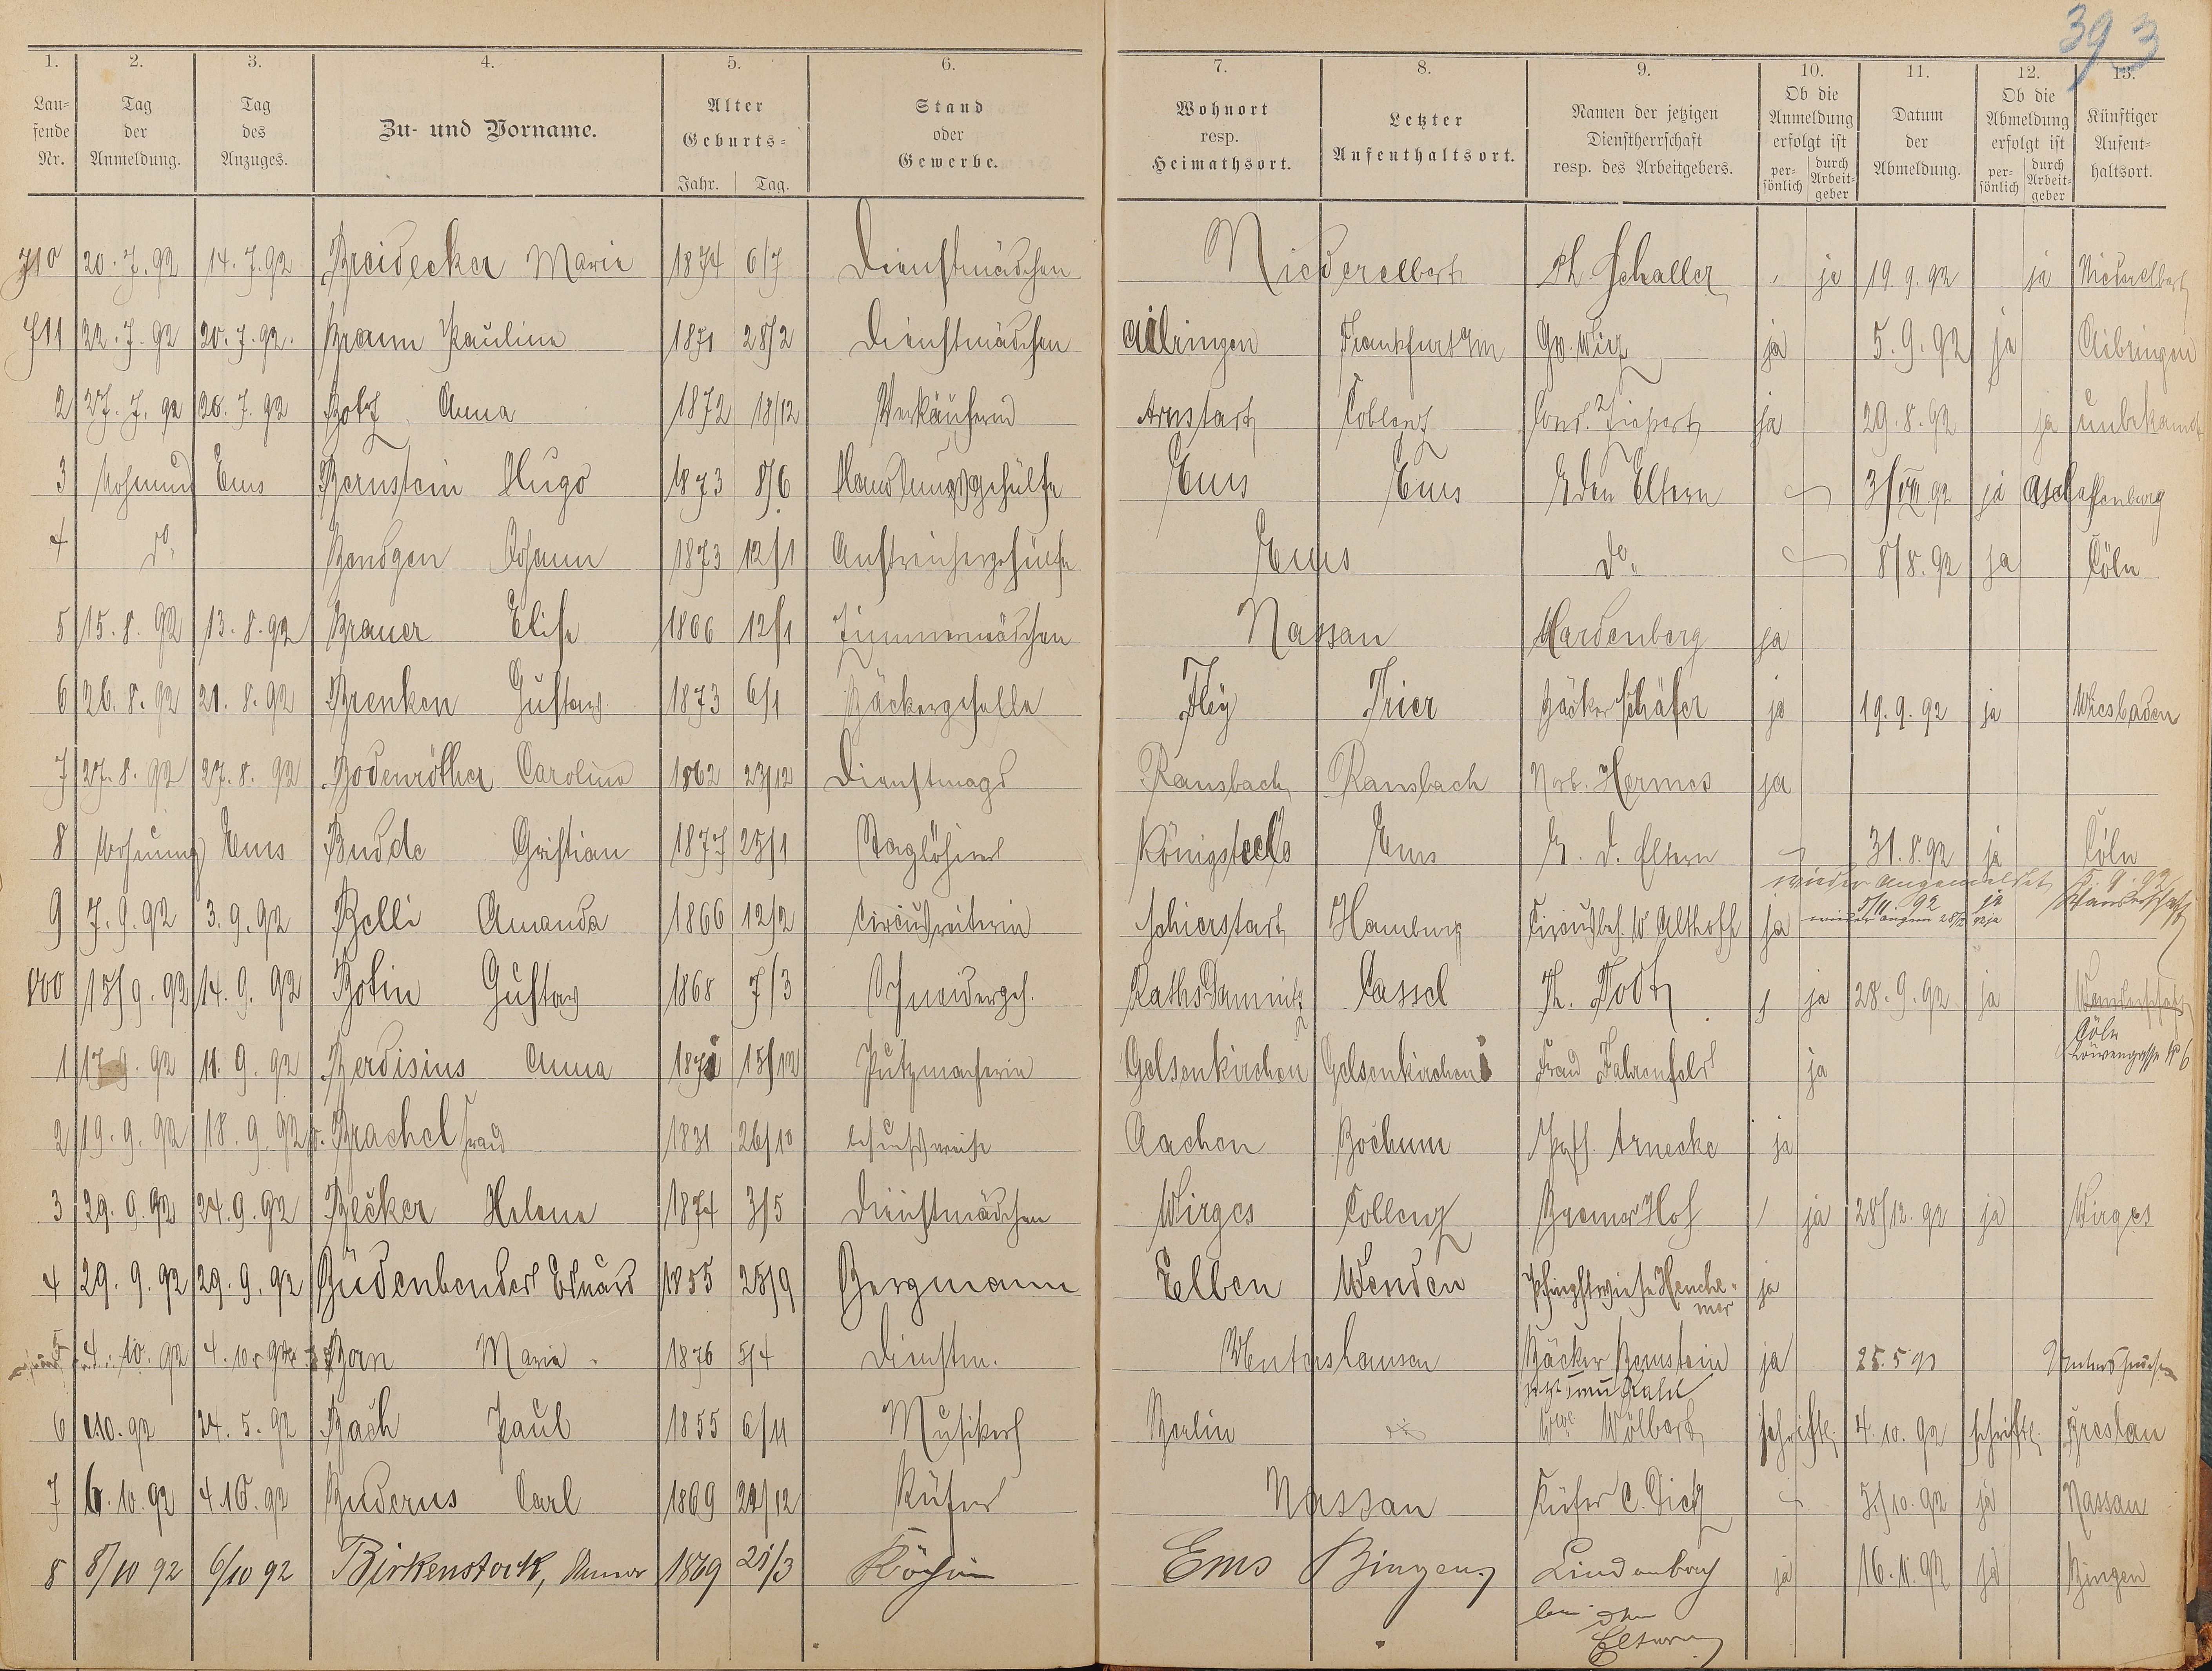 393
1. 2. 3. 4. 5. 6. 7. 8. 9. 10. 11. 12. 13.
Lau-
fende
Nr.
Tag
der
Anmeldung.
Tag
des
Anzuges.
Zu- und Vorname.
Alter
Geburts-
Jahr. Tag.
Stand
oder
Gewerbe.
Wohnort
resp.
Heimathsort.
Letzter
Aufenthaltsort.
Namen der jetzigen
Dienstherrschaft
resp. des Arbeitgebers.
Ob die
Anmeldung
erfolgt ist
per-
sönlich
durch
Arbeit-
geber
Datum
der
Abmeldung.
Ob die
Abmeldung
erfolgt ist
per-
sönlich
durch
Arbeit-
geber
Künftiger
Aufent-
haltsort.
710 20.7.92 14.7.92 Breidecker Marie 1874 6/7 Dienstmädchen Niederelbert Ph. Schaller ja 19.9.92 ja Niederelbert
711 22.7.92 20.7.92. Braun Pauline 1871 28/2 Dienstmädchen Ailringen Frankfurt a/m Gg. Wirz ja 5.9.92 ja Ailringen
2 27.7.92 26.7.92 Botz Anna 1872 18/12 Verkäuferin Arnstadt Coblenz ja 29.8.92 ja unbekannt
3 Wohnung Ems Bernstein Hugo 1873 8/6 Handlungsgehülfe Ems Ems b. den Eltern 3/VIII.92 ja Aschaffenburg
4 do. Bendgen Johann 1873 12/1 Anstreichergehülfe Ems do. 8/8.92 ja Cöln
5 15.8.92 13.8.92 Brauer Elise 1866 12/1 Zimmermädchen Nassau Hardenberg ja
6 26.8.92 21.8.92 Brenken Gustav 1873 6/1 Bäckergeselle Trier Bäcker Schäfer ja 19.9.92 ja Wiesbaden
7 27.8.92 27.8.92 Bodenröther Caroline 1862 23/12 Dienstmagd Ransbach Ransbach Norb. Hermes ja
8 Wohnung Ems Budde Christian 1877 25/1 Taglöhner Ems b. d. Eltern 31.8.92 ja Cöln
wieder angemeldet 5.9.92
9 7.9.92 3.9.92 Belli Amanda 1866 12/2 Circusreiterin Schierstadt Hamburg Circusbes. W Althoff ja 92 ja Wanderschaft
wieder angem 28/2 92 ja
800 15/9.92 14.9.92 Botin Gustav 1868 7/3 Schneiderges. Raths Damnitz Cassel Th. Todt ja 28.9.92 ja Wanderschaft
Cöln
Löwengasse No 6
1 17.9.92 11.9.92 Berdisius Anna 15/12 Putzmacherin Gelsenkirchen Gelsenkirchen Frau Fahrenfeld ja
2 19.9.92 18.9.92 v. Brachel Frau 1831 26/10 besuchsweise Aachen Bochum Arnecke ja
3 29.9.92 24.9.92 Becker Helene 1874 3/5 Dienstmädchen Wirges Coblenz Bremer Hof ja 28/12.92 ja Wirges
4 29.9.92 29.9.92 Büdenbender Eduard 1855 25/9 Bergmann Elben Wenden Pfingstwiese Henche-
mer ja
5 4.10.92 4.10.92 Born Maria 1876 5/4 Dienstm. Bäcker Bernstein ja 25.5 93
6 10.92 24.5.92 Bach Paul 1855 6/11 Musiker Berlin Wwe Wölbert schriftl. 4.10.92 schriftl. Breslau
7 6.10.92 4.10.92 Buderus Carl 1869 22/12 Küfer Nassau Küfer C. Dietz 5/10.92 ja Nassau
8 8/10 92 6/10 92 Birkenstock, Anna 1869 21/3 Köchin Ems Bingen Lindenbach ja 16.11.92 ja Bingen
bei den
Eltern